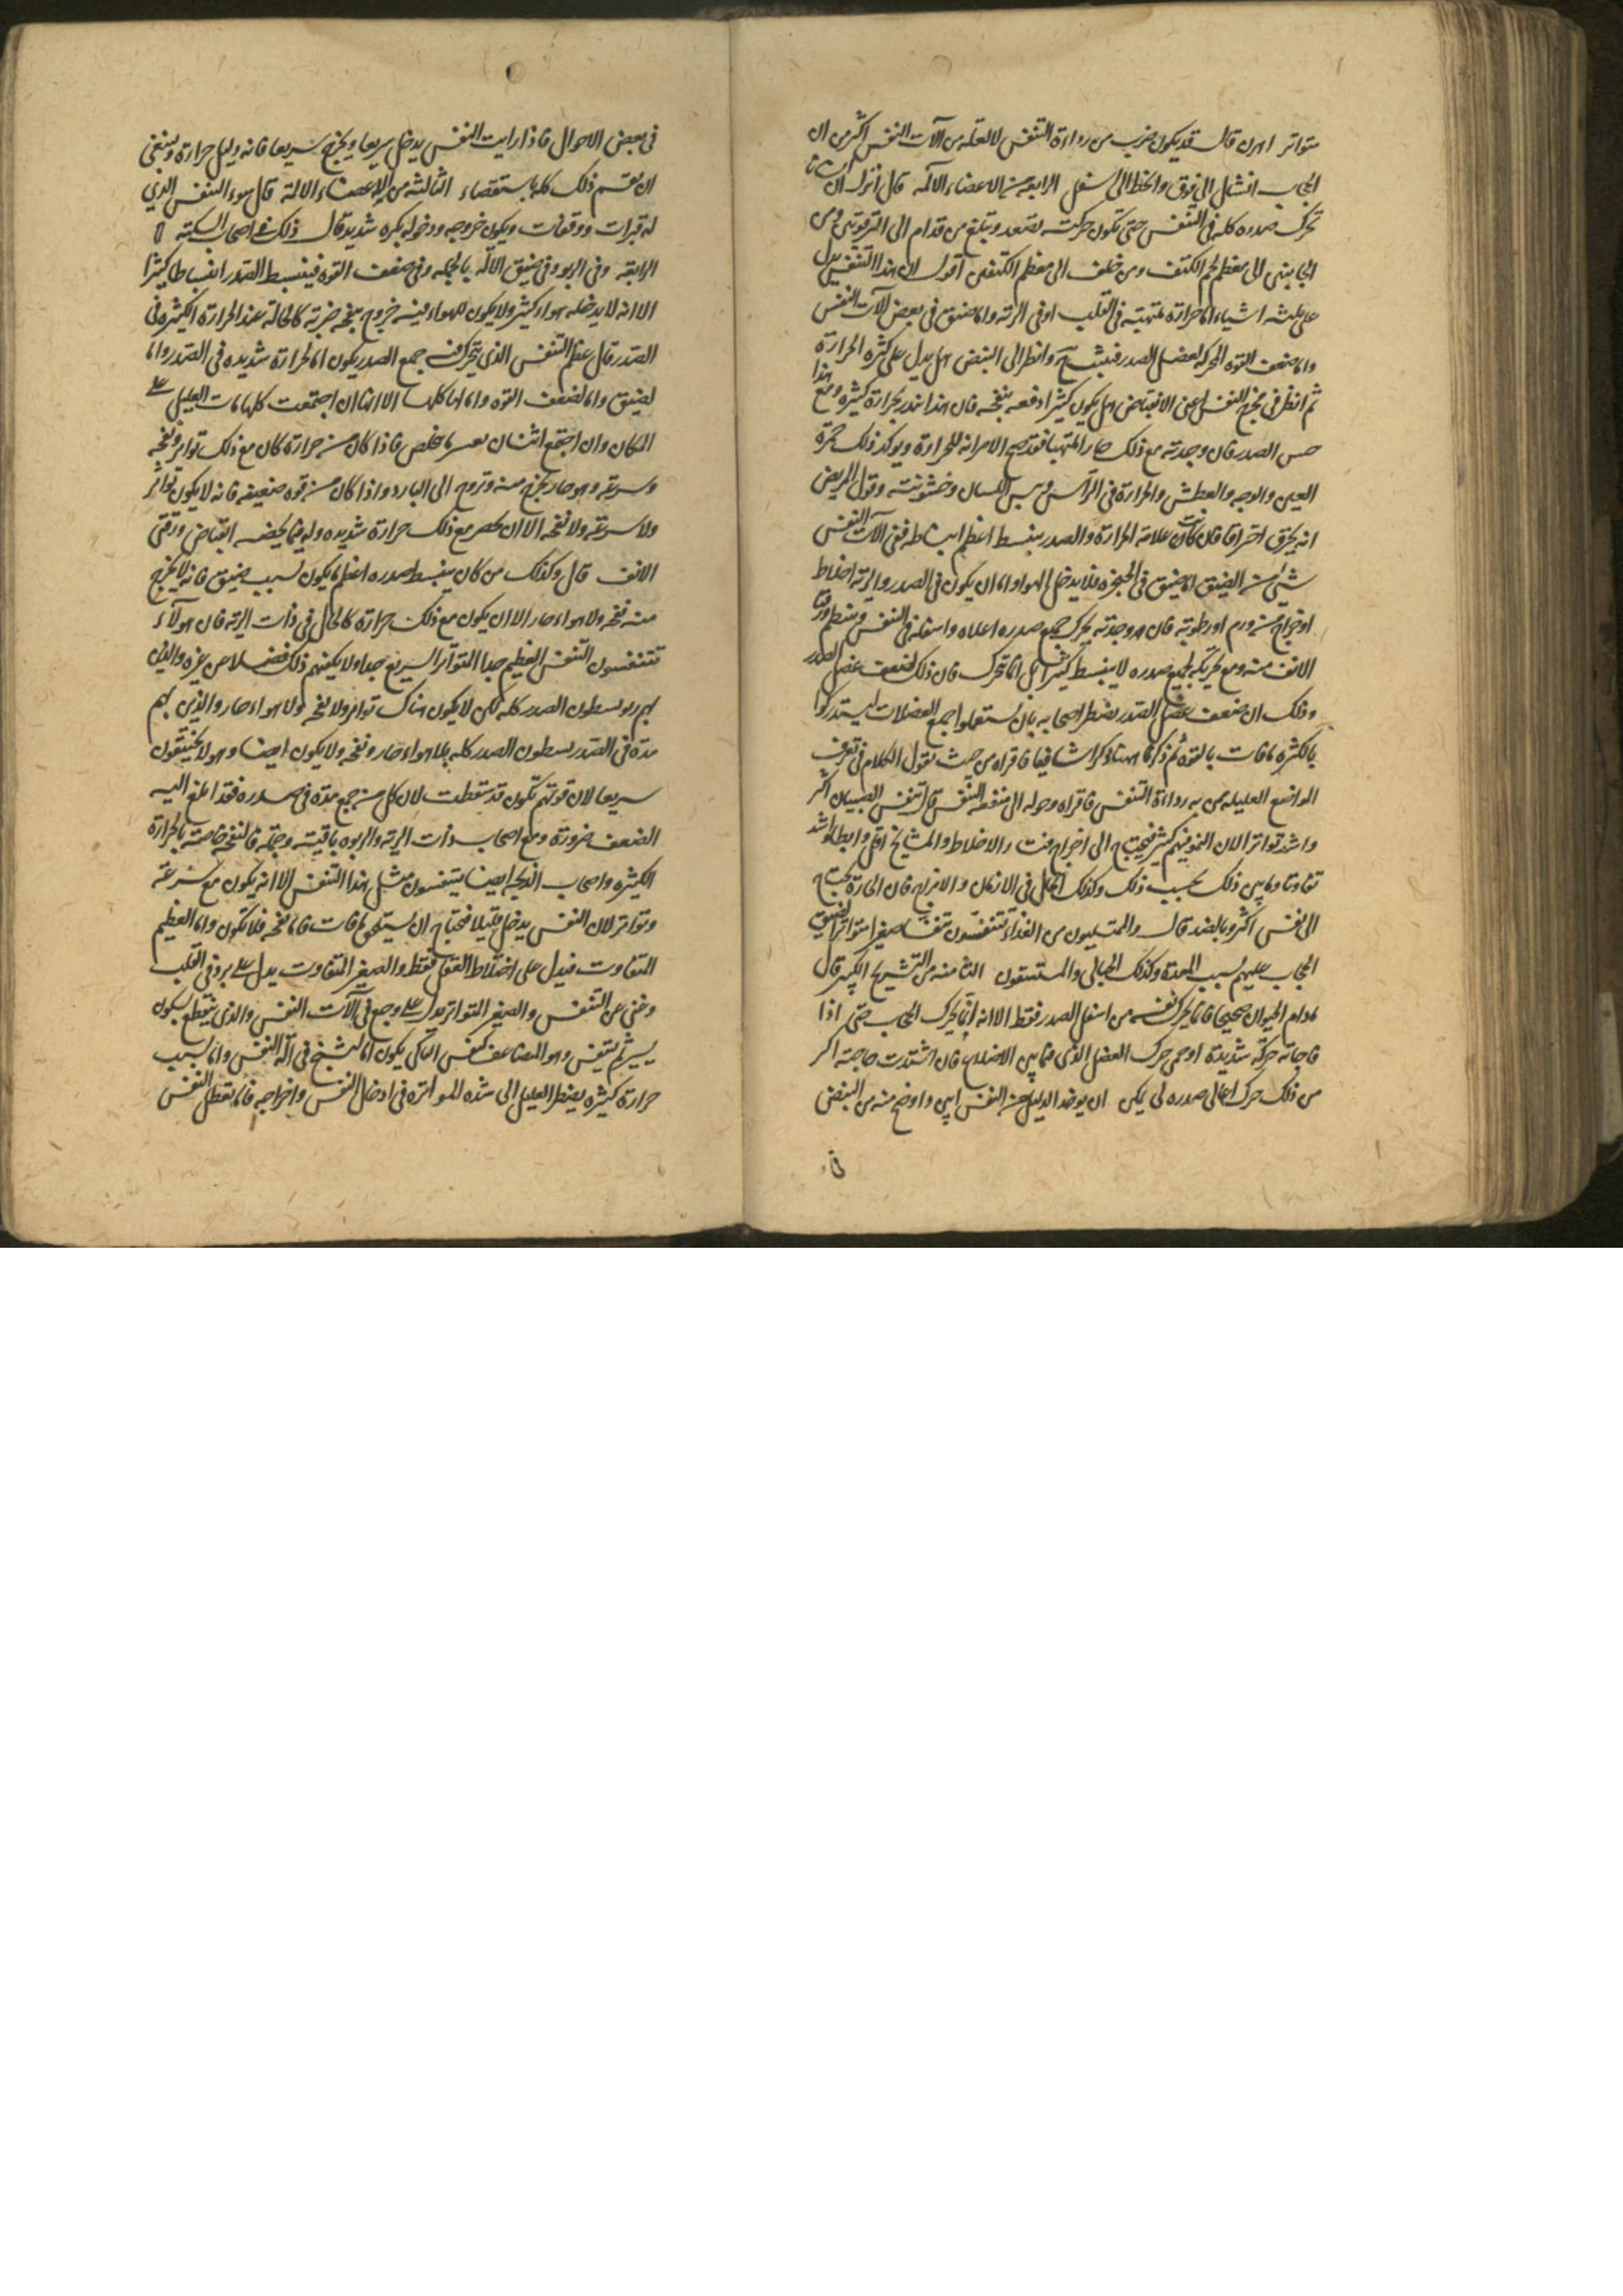 متواتر اهرن قال قد يكون ضرب من رداءة التنفس لا لعلة من آلات النفس اكثر من ان
الحجاب انشال الى فوق والحط الى اسفل الرابعة من الاعضاء الآلمة قال انزل ان انسانا
تحرك صدره كله فى التنفس حتى تكون حركته تصعد وتبلغ من قدام الى الترقوتين ومن
الجانبين الى معظم لحم الكتف ومن خلف الى معظم الكتفين اقول ان هذا التنفس يدل
على ثلثه اشياء اما حرارة ملتهبة فى القلب او فى الرئه واما ضيق فى بعض آلات النفس
واما ضعف القوه المحركه لعضل الصدر وانظر الى النبض هل يدل على كثرة الحرارة
ثم انظر فى مخرج النفس اعنى الانقباض هل يكون كثيرا دفعه بنفخه فان هذا ينذر بحرارة كثيره ومع هذا
حس الصدر فان وجدته مع ذلك حارا ملتهبا فقد صح الامر انه للحرارة ويوكد ذلك حمرة
العين والوجه والعطش والحرارة فى الرأس ويبس اللسان وخشونته وقول المريض
انه يحترق احتراقا فان كانت علامة الحرارة والصدر ينبسط اعظم انبساطه ففى آلات النفس
شئ من الضيق اما ضيق فى الحنجره فلا يدخل الهوا واما ان يكون فى الصدر والرئة اخلاط
او خراج من ورم او رطوبه فان هو وجدته يحرك جميع صدره اعلاه واسفله فى النفس وينطم ورقتا
الانف منه ومع تحريكه لجميع صدره لا ينبسط كثيرا بل انما تحرك فان ذلك لضعف عضل الصدر
وذلك ان ضعف عضل الصدر يضطر اصحابه بان يستعملوا جميع العضلات ليستدركوا
بالكثره ما فات بالقوه ثم ذكرنا هنا ذكرا شافيا فاقراه من حيث نقول الكلام فى تعرف
المواضع العليله من به رداءة التنفس فاقراه وحوله الى منفعه النفس قال تنفس الصبيان اكثر
واشد تواترا لان النمو فيهم كثير فيحتاج الى اخراج الاخلاط والمشايخ اقل وابطا واشد
تفاوتا وما بين ذلك بحسب ذلك وكذلك الحال فى الازمان والامزاج فان الحارة تحتاج
الى نفس اكثر وبالضد قال والممتلئون من الغذاء يتنفسون تنفسا صغيرا متواترا لضيق
الحجاب عليهم بسبب المعدة وكذلك الحبالى والمستسقون الثامنه من التشريح الكبير قال
مادام الحيوان صحيحا فانما يحرك نفسه من اسفل الصدر فقط الا انه انما يحرك الحجاب حتى اذا
فاجاته حركة شديدة او حمى حرك العضل الذى فيما بين الاضلاع فان اشتدت حاجته اكثر
من ذلك حرك اعالى صدره لى يمكن ان يوخذ الدليل من النفس ابين واوضح منه من النبض
فى
فى بعض الاحوال فاذا رايت النفس يدخل سريعا ويخرج سريعا فانه دليل حرارة وينبغى
ان يقسم ذلك كله باستقصاء الثالثه من الاعضاء الالمة قال سوء النفس الذي
له فترات ووقفات ويكون خروجه ودخوله بكره شديد قال ذلك فى اصحاب السكته لا
الرابعه وفى الربو وفى ضيق الآله بالجمله وفى ضعف القوه فينبسط الصدر انبساطا كثيرا
الا انه لا يدخله هواء كثير ولا يكون للهواء فيه خروج بنفخه ضربة كالحالة عند الحرارة الكثيره فى
الصدر قال عظم التنفس الذى يتحرك فيه جميع الصدر يكون اما لحرارة شديده فى الصدر واما
لضيق واما لضعف القوه واما لها كلها الا انها ان اجتمعت كلها مات العليل على
المكان وان اجتمع اثنتان بعسر ما خلص فاذا كان من حرارة كان مع ذلك تواتر ونفخه
وسرعة وهو حار يخرج منه وتروح الى البارد واذا كان من قوه ضعيفه فانه لا يكون تواتر
ولا سرعة ولا نفخه الا ان يحصر مع ذلك حرارة شديده وله فيما يخصه انقباض ورقتى
الانف قال وكذلك من كان ينبسط صدره اعظم ما يكون بسبب ضيق فانه لا يخرج
منه نفخه ولا هواء حار الا ان يكون مع ذلك حرارة كالحال فى ذات الرئة فان هولآء
تتنفسون التنفس العظيم جدا المتواتر السريع جدا ولا يكفيهم ذلك فضلا من غيره والذين
بهم ربو يبسطون الصدر كله لكن لا يكون هناك تواتر ولا نفخه ولا هواء حار والذين بهم
مدة فى الصدر يبسطون الصدر كله بلا هواء حار ونفخه ولا يكون ايضا وهولا يختنقون
سريعا لان قوتهم تكون قد سقطت لان كل من جمع مدة فى صدره فقد ابلغ اليه
الضعف ضرورة ومع اصحاب ذات الرية والربوه باقيته وجملة فالنفخه خاصة بالحرارة
الكثيره واصحاب الذبحه ايضا يتنفسون مثل هذا التنفس الا انه يكون مع سرعة
وتواتر لان النفس يدخل قليلا فيحتاج ان يستلحق ما فات فاما نفخه فلا تكون واما العظيم
المتفاوت فيدل على اختلاط العقل فقط والصغير المتفاوت يدل على برد فى القلب
وغنى عن التنفس والصغير المتواتر يدل على وجع فى آلات النفس والذى ينقطع بسكون
يسير ثم يتنفس وهو المضاعف كنفس الباكى يكون اما لتشنج فى آلة النفس واما بسبب
حرارة كثيره يضطر العليل الى شده المواتره فى ادخال النفس واخراجه فاما تعطل النفس